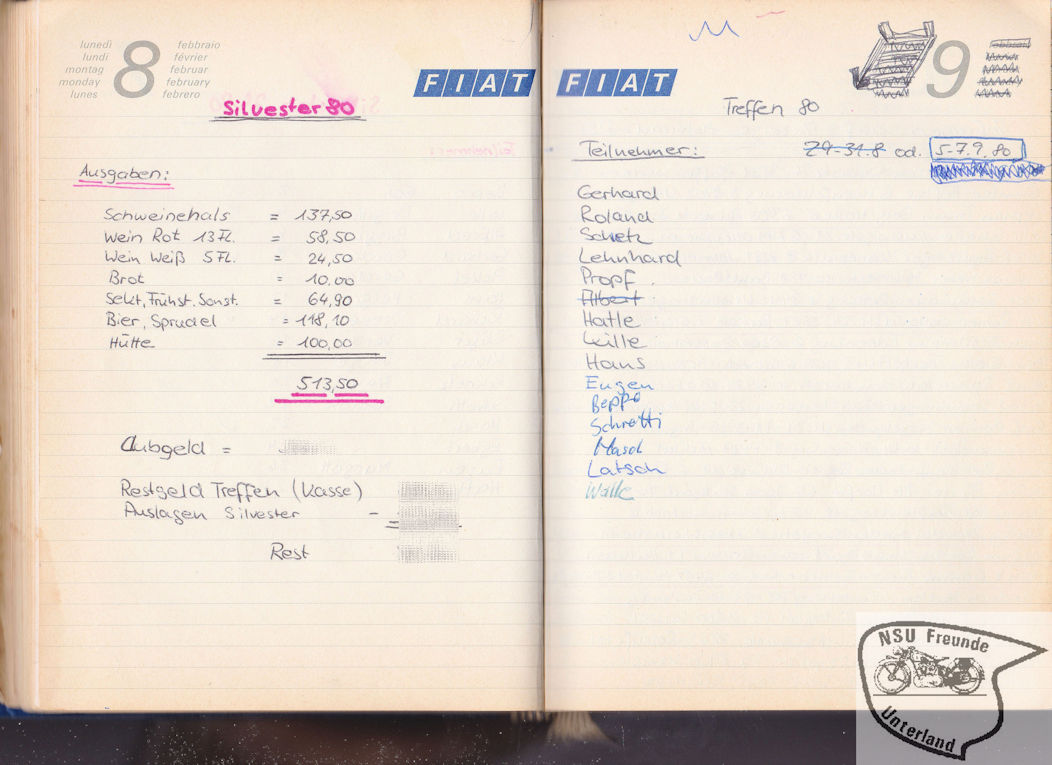 lunedì febbraio
lundi février
montag februar
monday february
lunes febrero
8
FIAT
Silvester 80
Ausgaben:
Schweinehals = 137,50
Wein Rot 13 Fl. = 58,50
Wein Weiß 5 Fl. = 24,50
Brot = 10,00
Sekt, Frühst. Sonst. = 64,90
Bier, Sprudel = 118,10
Hütte = 100,00
513,50
Clubgeld =
Restgeld Treffen (Kasse)
Auslagen Silvester -
Rest
FIAT
9
Treffen 80
Teilnehmer: 29-31.8 od. 5-7.9.80
Gerhard
Roland
Schetz
Lehnhard
Propf
Albert
Hatle
Wille
Hans
Eugen
Beppo
Schretti
Masol
Latsch
Wolle
NSU Freunde
Unterland